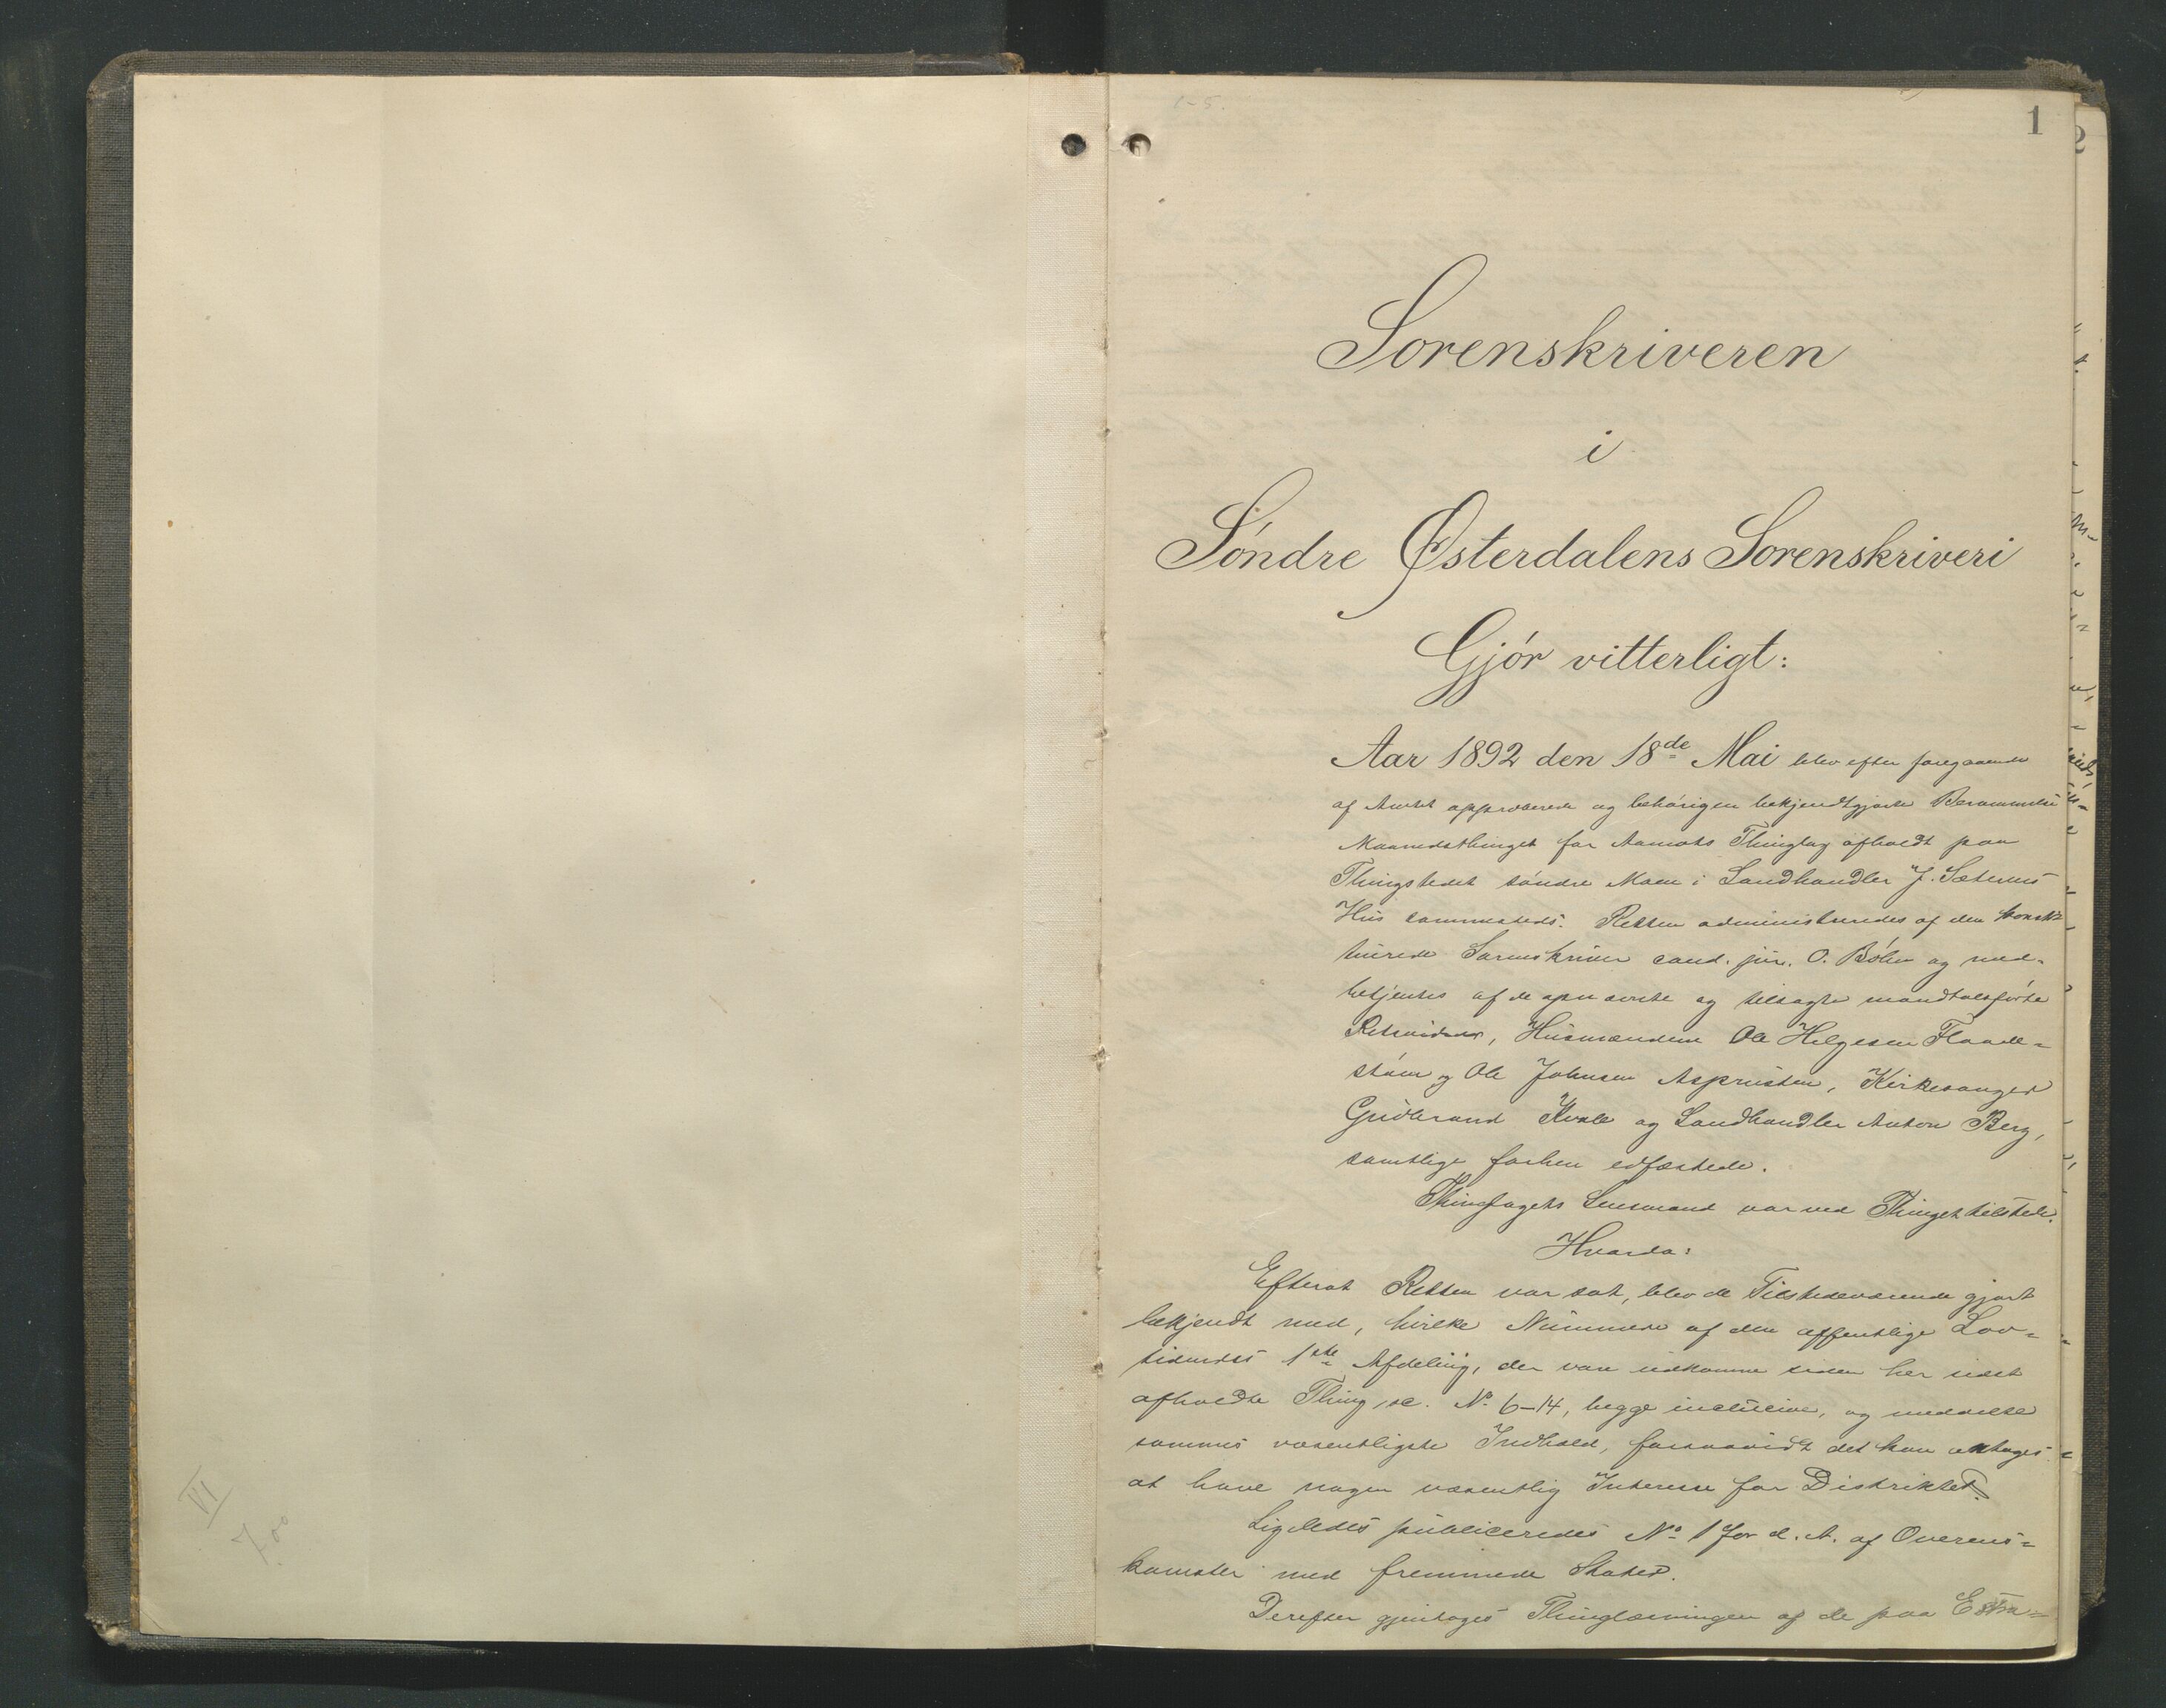 VI
7.00
1-5.
1
2
Sorenskriveren
i
Söndre Østerdalens Sorenskriveri
Gjör vitterligt:
Aar 1892 den 18de Mai blev efter foregaaende
af Amtet approberede og behörigen bekjendtgjorte Berammelse
Maanedsthinget for Aamots Thinglag afholdt paa
Thingstedet söndre Moen i Landhandler J. Sæternes
Hus sammesteds. Retten administreredes af den konsti-
tuerede Sorenskriver cand. jur. O. Bölen og med-
betjentes af de opnævnte og tilsagte mandtalsförte
Retsvidner, Husmændene Ole Helgesen Flaade-
stöen og Ole Johnsen Asprusten, Kirkesanger
Gudbrand Kvale og Landhandler Anton Berg,
samtlige forhen edfæstede.
Thinglagets Lensmand var ved Thinget tilstede.
Hvorda:
Efterat Retten var sat, blev de Tilstedeværende gjort
bekjendt med, hvilke Nummere af den offentlige Lov-
tidendes 1ste Afdeling, der vare udkomne siden her sidst
afholdte Thing, sc. No 6-14, begge inclusive, og meddelte
sammes væsentligste Indhold, forsaavidt det kan antages
at have nogen væsentlig Interesse for Distriktet.
Ligeledes publiceredes No 1 for d. A. af Overens-
komster med fremmede Stater.
Derefter gjentoges Thinglæsningen af de paa Extra-